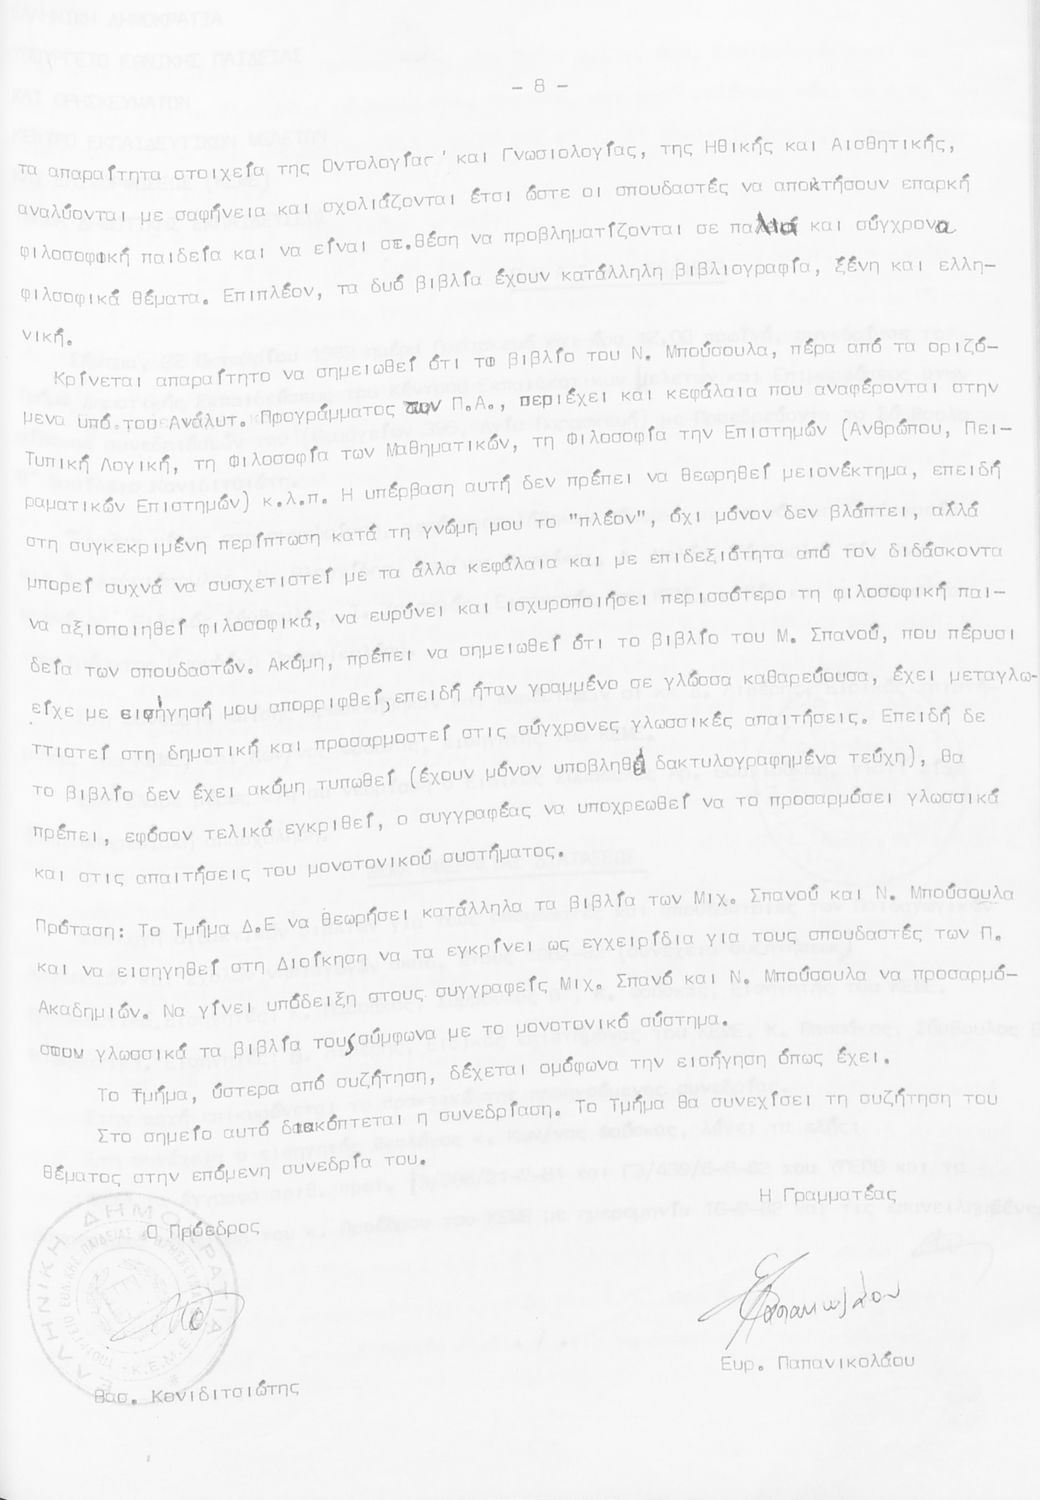 - 8 -
τα απαραίτητα στοιχεία της Οντολογίας και Γνωσιολογίας, της Ηθικής και Αισθητικής,
αναλύονται με σαφήνεια και σχολιάζονται έτσι ώστε οι σπουδαστές να αποκτήσουν επαρκή
φιλοσοφική παιδεία και να είναι σε θέση να προβληματίζονται σε παλιά και σύγχρονα
φιλσοφικά θέματα. Επιπλέον, τα δυό βιβλία έχουν κατάλληλη βιβλιογραφία, ξένη και ελλη-
νική.
Κρίνεται απαραίτητο να σημειωθεί ότι το βιβλίο του Ν. Μπούσουλα, πέρα από τα οριζό-
μενα υπό του Ανάλυτ. Προγράμματος των Π.Α., περιέχει και κεφάλαια που αναφέρονται στην
Τυπική Λογική, τη Φιλοσοφία των Μαθηματικών, τη Φιλοσοφία την Επιστημών (Ανθρώπου, Πει-
ραματικών Επιστημών) κ.λ.π. Η υπέρβαση αυτή δεν πρέπει να θεωρηθεί μειονέκτημα, επειδή
στη συγκεκριμένη περίπτωση κατά τη γνώμη μου το "πλέον", όχι μόνον δεν βλάπτει, αλλά
μπορεί συχνά να συσχετιστεί με τα άλλα κεφάλαια και με επιδεξιότητα από τον διδάσκοντα
να αξιοποιηθεί φιλοσοφικά, να ευρύνει και ισχυροποιήσει περισσότερο τη φιλοσοφική παι-
δεία των σπουδαστών. Ακόμη, πρέπει να σημειωθεί ότι το βιβλίο του Μ. Σπανού, που πέρυσι
είχε με εισήγησή μου απορριφθεί, επειδή ήταν γραμμένο σε γλώσσα καθαρεύουσα, έχει μεταγλω-
ττιστεί στη δημοτική και προσαρμοστεί στις σύγχρονες γλωσσικές απαιτήσεις. Επειδή δε
το βιβλίο δεν έχει ακόμη τυπωθεί (έχουν μόνον υποβληθεί δακτυλογραφημένα τεύχη), θα
πρέπει, εφόσον τελικά εγκριθεί, ο συγγραφέας να υποχρεωθεί να το προσαρμόσει γλωσσικά
και στις απαιτήσεις του μονοτονικού συστήματος.
Πρόταση: Το Τμήμα Δ.Ε να θεωρήσει κατάλληλα τα βιβλία των Μιχ. Σπανού και Ν. Μπούσουλα
και να εισηγηθεί στη Διοίκηση να τα εγκρίνει ως εγχειρίδια για τους σπουδαστές των Π.
Ακαδημιών. Να γίνει υπόδειξη στους συγγραφείς Μιχ. Σπανό και Ν. Μπούσουλα να προσαρμό-
σουν γλωσσικά τα βιβλία τους σύμφωνα με το μονοτονικό σύστημα.
Το Τμήμα, ύστερα από συζήτηση, δέχεται ομόφωνα την εισήγηση όπως έχει.
Στο σημείο αυτό διακόπτεται η συνεδρίαση. Το Τμήμα θα συνεχίσει τη συζήτηση του
θέματος στην επόμενη συνεδρία του.
Η Γραμματέας
Ο Πρόεδρος
ΕΛΛΗΝΙΚΗ ΔΗΜΟΚΡΑΤΙΑ
Κ.Ε.Μ.Ε.
Ευρ. Παπανικολάου
Βασ. Κονιδιτσιώτης